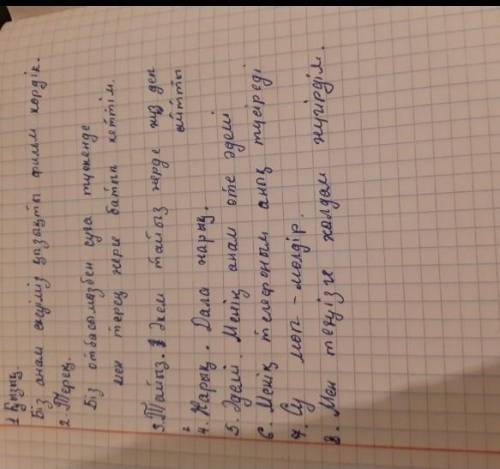 1 Қызық.
Біз анам екеуміз қазақты фильм көрдік.
2. Терең.
Біз отбасымызбен суға түскенде
мен терең жерге батып кеттім.
3. Тайыз. Әкем тайыз жерде жүз деп
айтты
4. Жарық. Дала жарық.
5. Әдемі. Менің анам өте әдемі
6. Менің телефоным анық түсіреді
7. Су мөп-мөлдір.
8. Мен теңізге жалдам жүгірдім.